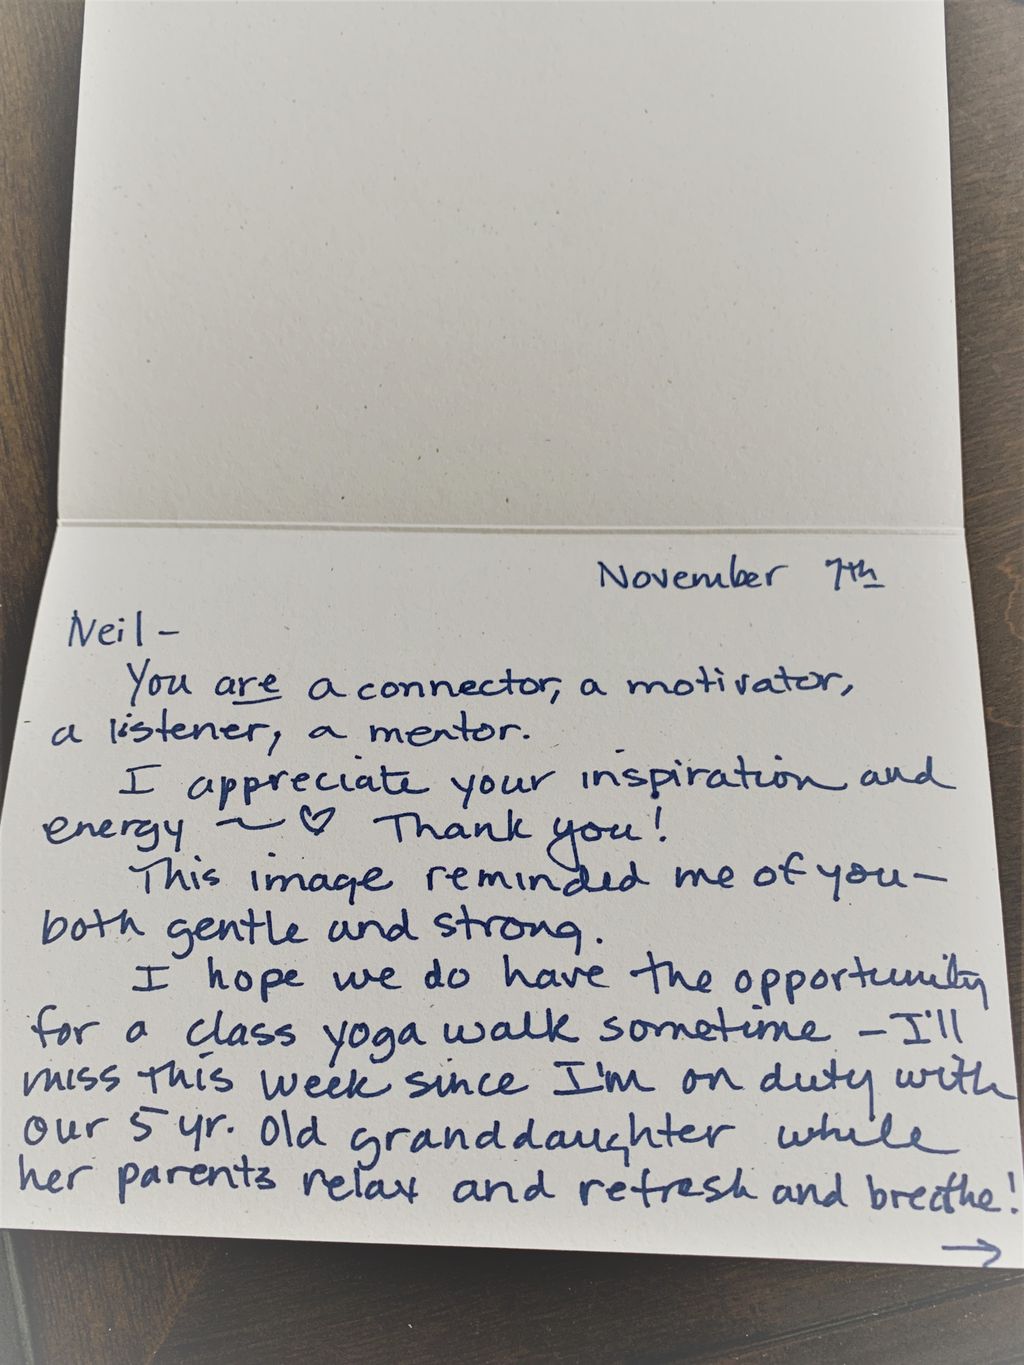 November 7th
Neil -
You are a connector, a motivator,
a listener, a mentor.
I appreciate your inspiration and
energy ~ ♡ Thank you!
This image reminded me of you -
both gentle and strong.
I hope we do have the opportunity
for a class yoga walk sometime - I'll
miss this week since I'm on duty with
our 5 yr. old granddaughter while
her parents relax and refresh and breathe!
→